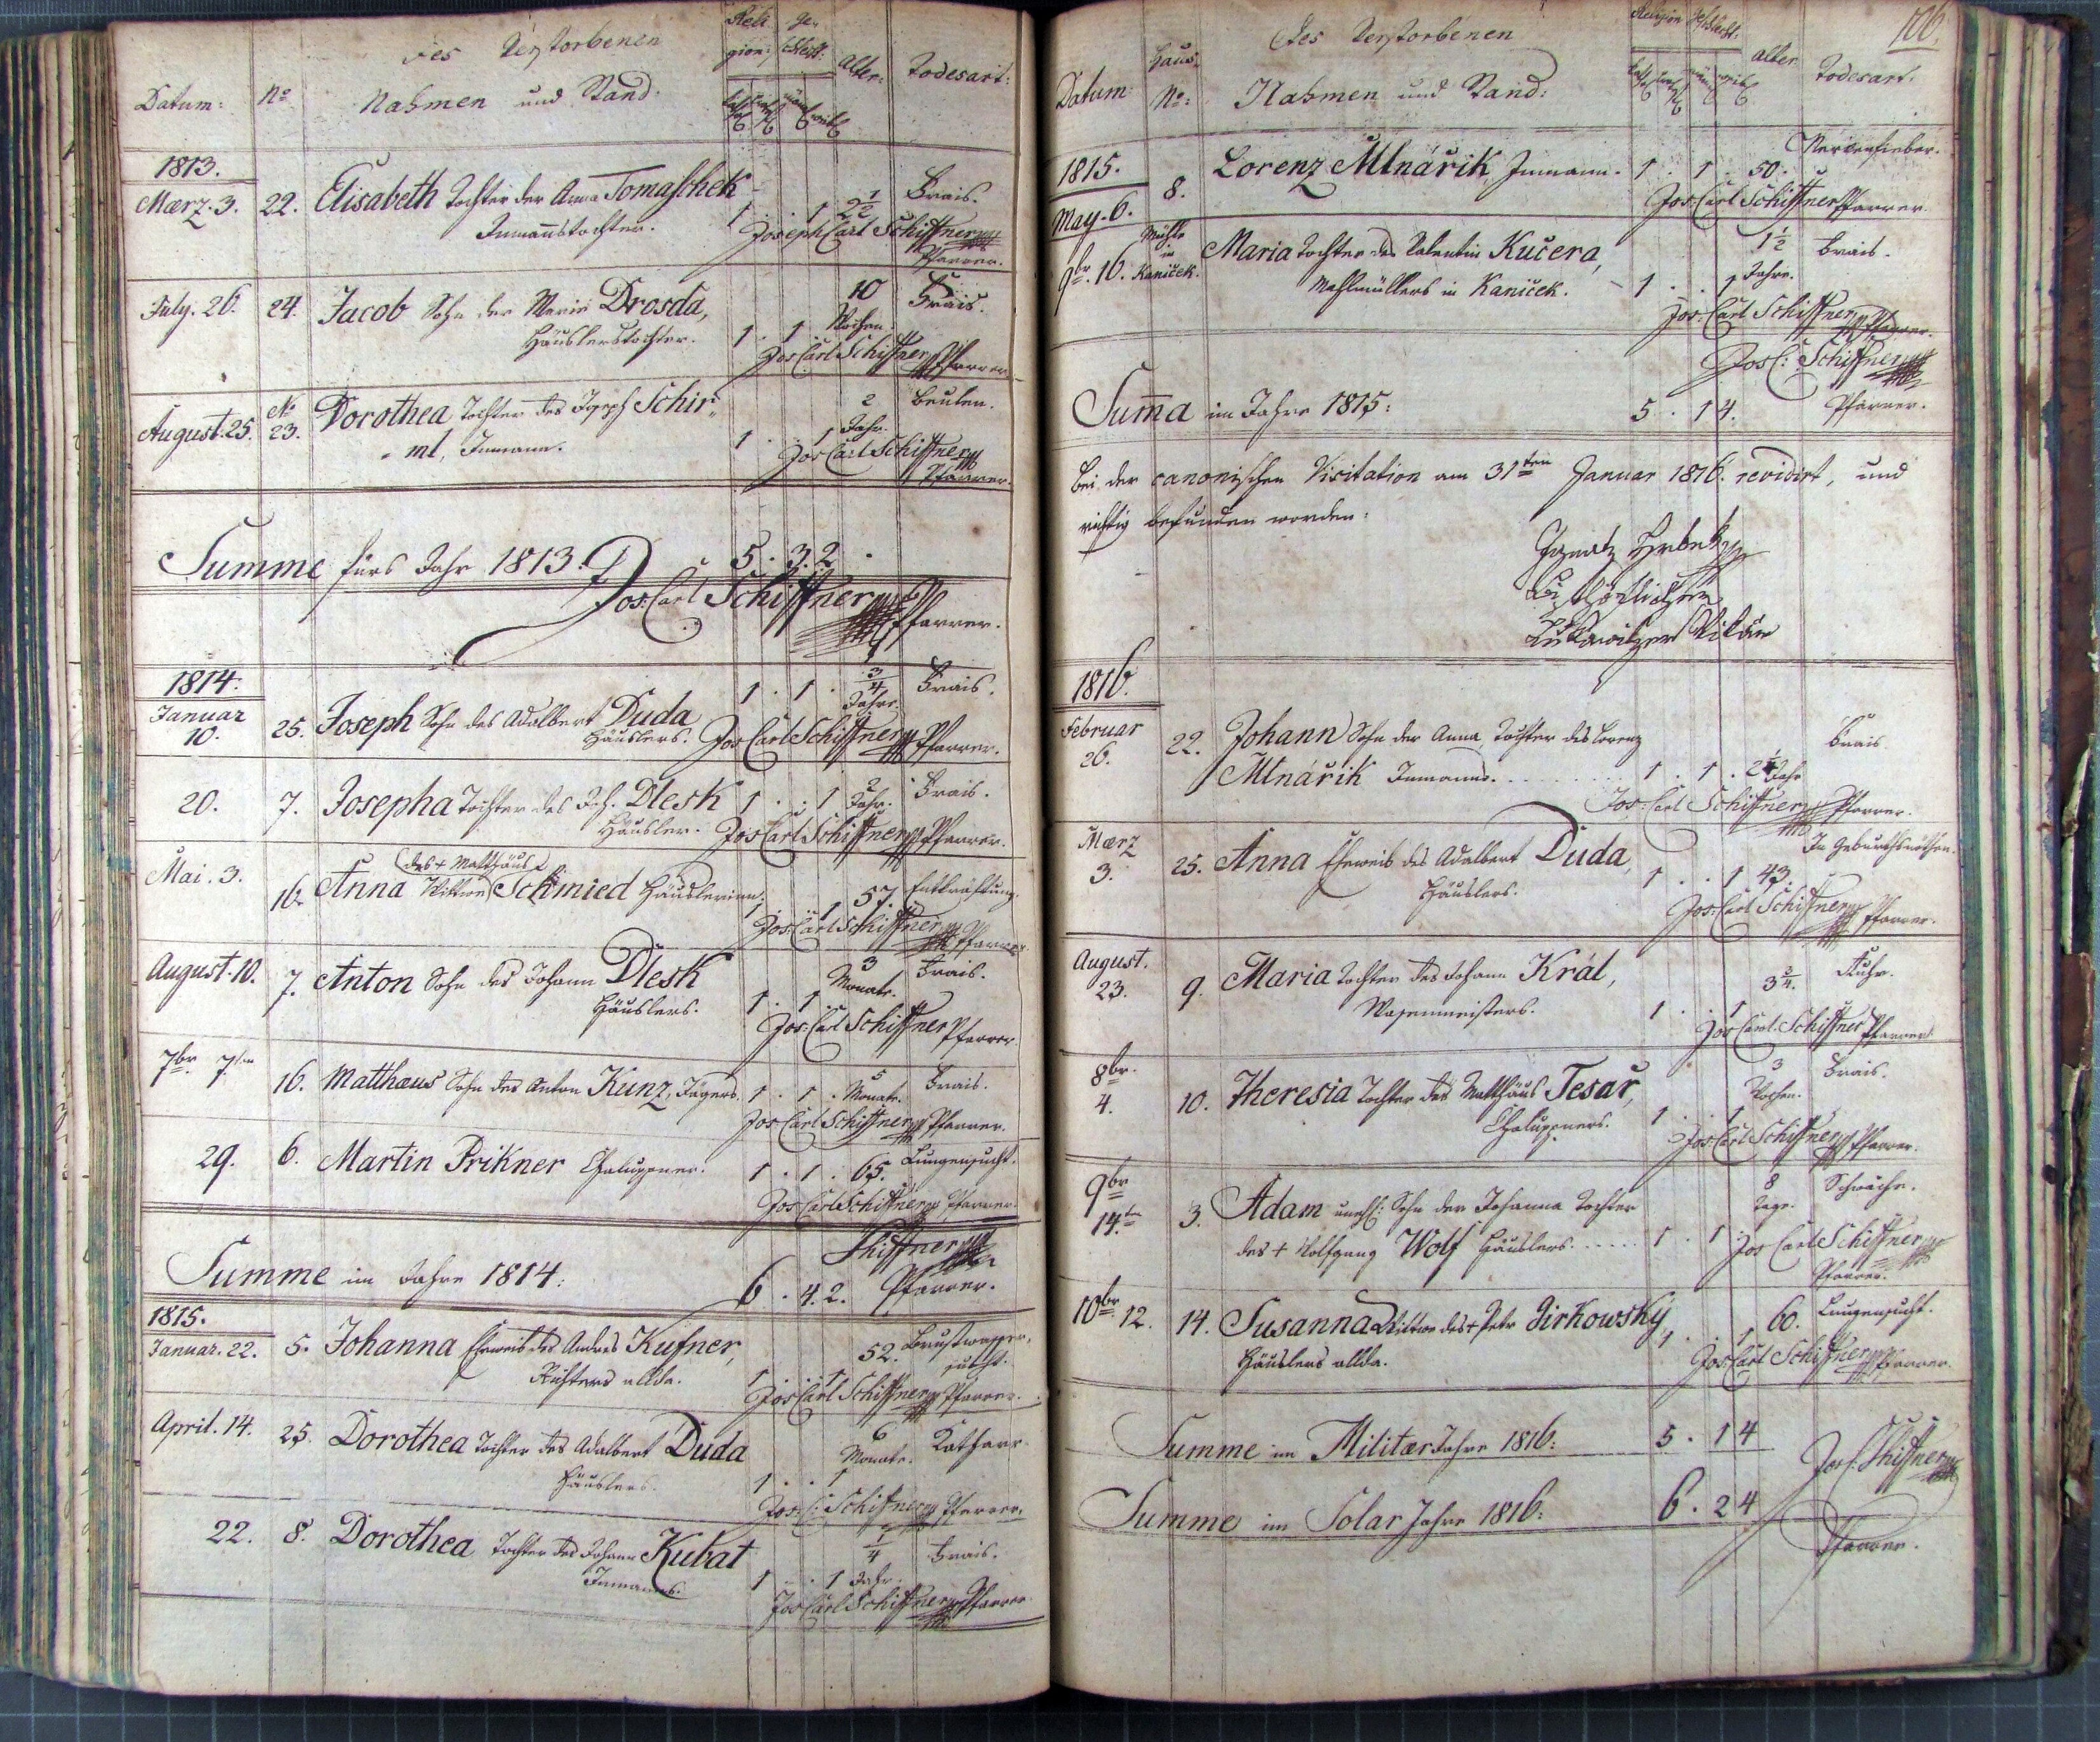 des Verstorbenen
Reli gion; ge, schlecht:
Datum: No Nahmen und Stand. Alter: Todesart:
1813.
Mærz. 3. 22. Elisabeth Tochter der Anna Tomaschek 1 . . 1 2½ Frais.
Inmanstochter. Joseph Carl Schiffner
Pfarrer.
July. 26. 24. Jacob Sohn der Maria Drosda, 10 Frais.
Häuslerstochter. 1 . 1 Wochen.
Jos Carl Schiffner Pfarrer
August. 25. No 23. Dorothea Tochter des Joseph Schir, 2 Beulen.
ml, Inmann. 1 . . 1 Jahr.
Jos Carl Schiffner
Pfarrer.
Summe fürs Jahr 1813. 5 . 3. 2
Jos: Carl Schiffner Pfarrer.
1814.
Januar 10. 25. Joseph Sohn des Adalbert Duda 1 . 1 . ¾ Jahr. Frais.
Häuslers. Jos Carl Schiffner Pfarrer.
20. 7. Josepha Tochter des Joh. Dlesk 1 . . 1 2 Jahr. Frais.
Häusler. Jos Carl Schiffner Pfarrer.
des + Matthäus
Mai. 3. 16. Anna Wittwe Schmied Häuslerinn; 1 . . 1 57. Entkräftung.
Jos: Carl Schiffner Pfarrer
August. 10. 7. Anton Sohn des Johann Dlesk 3 Monate. Frais.
Häuslers. 1 . 1
Jos: Carl Schiffner Pfarrer.
7br 7ten 16. Matthæus Sohn des Anton Kunz, Jägers. 1 . 1 . 5 Monate. Frais.
Jos Carl Schiffner Pfarrer.
29. 6. Martin Prikner Chaluppner. 1 . 1 . 65. Lungensucht.
Jos Carl Schiffner Pfarrer.
Summe im Jahre 1814: 6 . 4. 2. Schiffner
Pfarrer.
1815.
Januar. 22. 5. Johanna Eheweib des Andreas Kufner, 52. Brustwasser,
Richters allda. 1 . . 1 sucht.
Jos Carl Schiffner Pfarrer.
April. 14. 25. Dorothea Tochter des Adalbert Duda 6 Monate. Katharr.
Häuslers. 1 . . 1
Jos: C: Schiffner Pfarrer.
22. 8. Dorothea Tochter des Johann Kubat ¼ Frais.
Inmanns. 1 . . 1 Jahr.
Jos Carl Schiffner Pfarrer
106.
des Verstorbenen
Religion Geschlecht:
Datum: Haus, No: Nahmen und Stand: Alter Todesart.
1815.
May. 6. 8. Lorenz Mlnářik, Inmann. 1 . 1 . 50. Nervenfieber.
Jos: Carl Schiffner Pfarrer.
9br. 16. Mühle in Kaniček. Maria Tochter des Valentin Kučera, 1½ Frais.
Mahlmüllers in Kaniček. 1 . . 1 Jahre.
Jos: Carl Schiffner Pfarrer.
Jos C: Schiffner
Suma im Jahre 1815: 5 . 1 4. Pfarrer.
Bei der canonischen Visitation am 31ten Januar 1816. revidirt, und
richtig befunden worden:
Ignatz
Vikär
1816.
Februar 26. 22. Johann Sohn der Anna, Tochter des Lorenz Frais
Mlnářik Inmanns. 1 . 1 . Jahr
Jos: Carl Schiffner Pfarrer.
Mærz 3. 25. Anna Eheweib des Adalbert Duda, In Geburthsnöthen.
Häuslers. 1 . . 1 43.
Jos: Carl Schiffner Pfarrer.
August. 23. 9. Maria Tochter des Johann Král, 3¾. Ruhr.
Wasenmeisters. 1 . . 1
Jos Carl: Schiffner Pfarrer.
8br. 4. 10. Theresia Tochter des Matthäus Tesař, 3 Wochen. Frais.
Chaluppners. 1 . . 1
Jos Carl Schiffner Pfarrer.
9br 14ten 3. Adam unehl: Sohn der Johanna Tochter 8 Tage. Schwäche.
des + Wolfgang Wolf Häuslers. 1 . 1 Jos Carl Schiffner
Pfarrer.
10br. 12. 14. Susanna Wittwe des + Petr Jirkowsky, 1 . . 1 60. Lungensucht.
Häuslers allda. Jos: Carl Schiffner Pfarrer.
Summe im Militær Jahre 1816: 5 . 1 4
Jos C. Schiffner
Summe im Solar Jahre 1816: 6 . 2 4
Pfarrer.